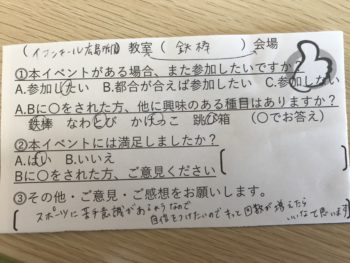 (イオンモール広島府中)教室(鉄棒)会場
①本イベントがある場合、また参加したいですか?
A.参加したい B.都合が合えば参加したい C.参加しない
A.Bに〇をされた方、他に興味のある種目はありますか?
鉄棒 なわとび かけっこ 跳び箱 (〇でお答え)
②本イベントには満足しましたか?
A.はい B.いいえ
Bに〇をされた方、ご意見ください
③その他・ご意見・ご感想をお願いします。
スポーツに苦手意識があるようなので
自信をつけたいのでもっと回数が増えたら
いいなと思います